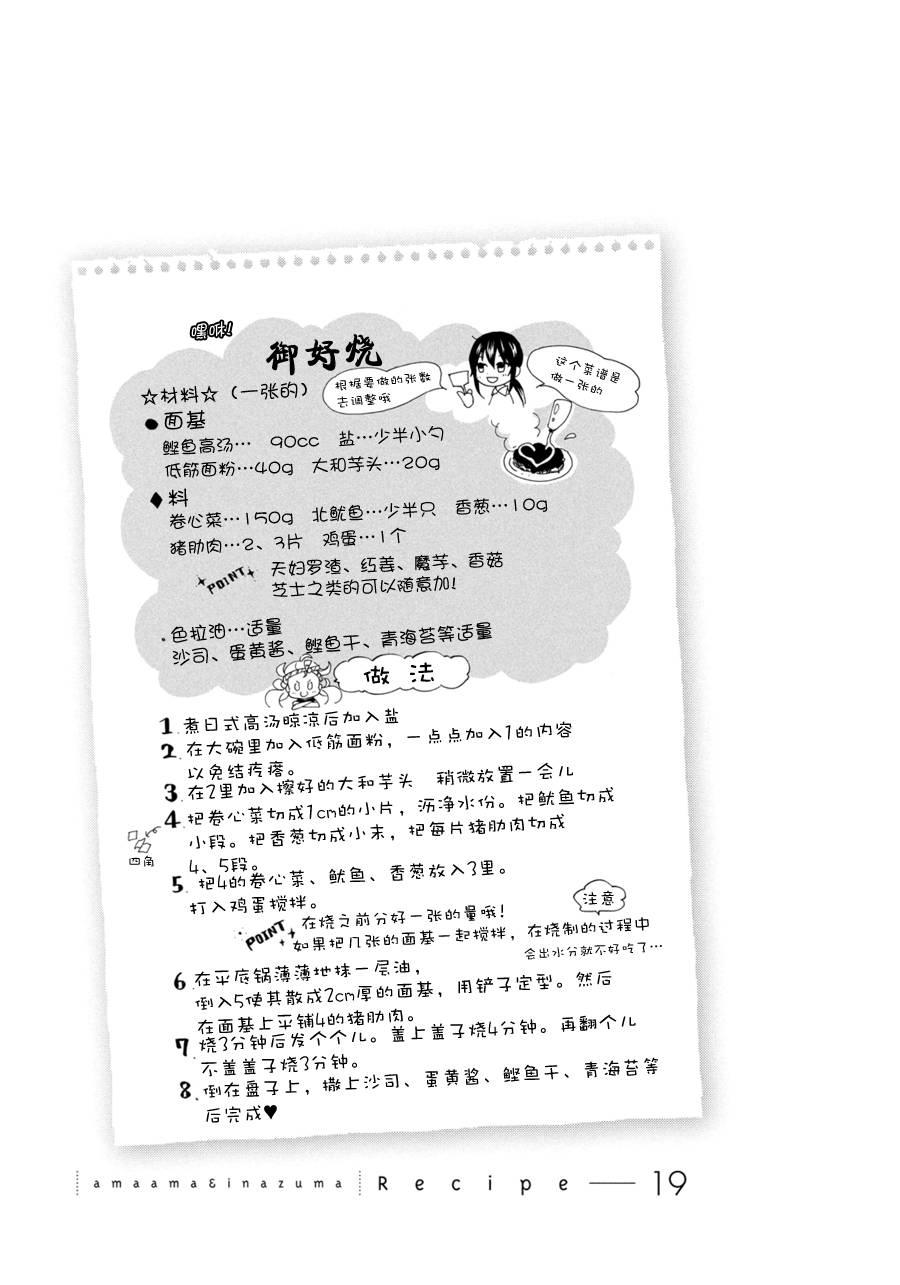 嘿咻!
御好烧
☆材料☆（一张的）
根据要做的张数
去调整哦
这个菜谱是
做一张的
●面基
鲣鱼高汤… 90cc 盐…少半小勺
低筋面粉…40g 大和芋头…20g
◆料
卷心菜…150g 北鱿鱼…少半只 香葱…10g
猪肋肉…2、3片 鸡蛋…1个
POINT 天妇罗渣、红姜、魔芋、香菇
芝士之类的可以随意加!
.色拉油…适量
沙司、蛋黄酱、鲣鱼干、青海苔等适量
做法
1.煮日式高汤晾凉后加入盐
2.在大碗里加入低筋面粉，一点点加入1的内容
以免结疙瘩。
3.在2里加入擦好的大和芋头 稍微放置一会儿
4.把卷心菜切成1cm的小片，沥净水份。把鱿鱼切成
小段。把香葱切成小末，把每片猪肋肉切成
4、5段。
四角
5.把4的卷心菜、鱿鱼、香葱放入3里。
打入鸡蛋搅拌。
注意
POINT 在烧之前分好一张的量哦!
如果把几张的面基一起搅拌，在烧制的过程中
会出水分就不好吃了…
6.在平底锅薄薄地抹一层油，
倒入5使其散成2cm厚的面基，用铲子定型。然后
在面基上平铺4的猪肋肉。
7.烧3分钟后发个个儿。盖上盖子烧4分钟。再翻个儿
不盖盖子烧3分钟。
8.倒在盘子上，撒上沙司、蛋黄酱、鲣鱼干、青海苔等
后完成♥
amaama&inazuma Recipe — 19